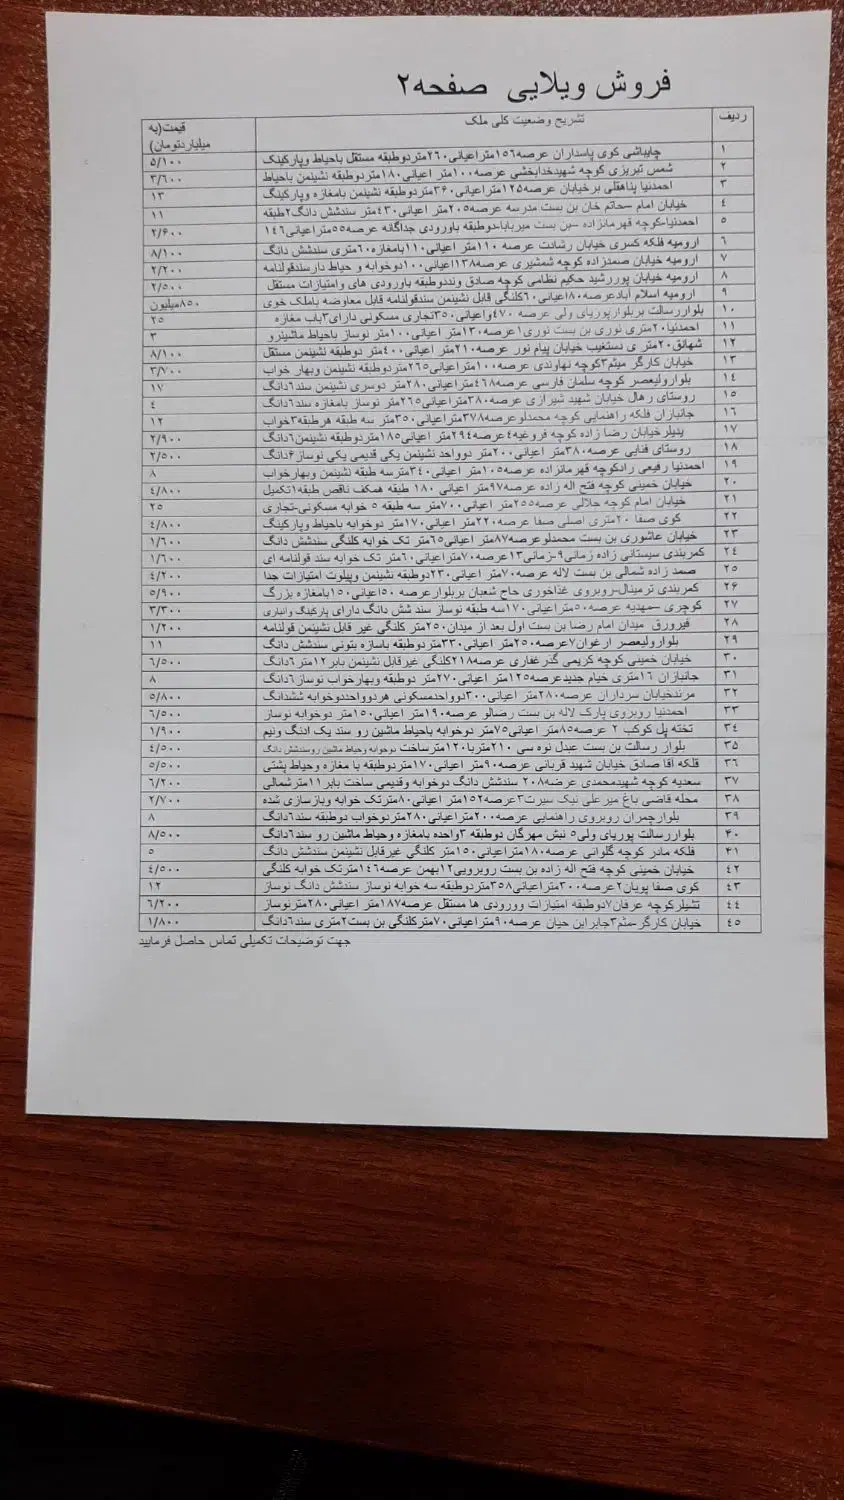 فروش ویلایی صفحه۲
ردیف تشریح وضعیت کلی ملک قیمت(به میلیاردتومان)
۱ چایباشی کوی پاسداران عرصه۱۵۶متراعیانی۲۶۰متردوطبقه مستقل باحیاط وپارکینگ ۵/۱۰۰
۲ شمس تبریزی کوچه شهیدخدابخشی عرصه۱۰۰متر اعیانی۱۸۰متردوطبقه نشیمن باحیاط ۳/۶۰۰
۳ احمدنیا پناهقلی برخیابان عرصه۱۲۵متراعیانی۳۶۰متردوطبقه نشیمن بامغازه وپارکینگ ۱۳
۴ خیابان امام –حاتم خان بن بست مدرسه عرصه۲۰۵متر اعیانی۴۳۰متر سندشش دانگ۲طبقه ۱۱
۵ احمدنیا-کوچه قهرمانزاده –بن بست میربابا-دوطبقه باورودی جداگانه عرصه۵۵متراعیانی۱۴۶ ۲/۶۰۰
۶ ارومیه فلکه کسری خیابان رشادت عرصه ۱۱۰متر اعیانی۱۱۰بامغازه۶۰متری سندشش دانگ ۸/۱۰۰
۷ ارومیه خیابان صمدزاده کوچه شمشیری عرصه۱۳۸اعیانی۱۰۰دوخوابه و حیاط دارسندقولنامه ۲/۲۰۰
۸ ارومیه خیابان پوررشید حکیم نظامی کوچه صادق ونددوطبقه باورودی های وامتیازات مستقل ۲/۵۰۰
۹ ارومیه اسلام آبادعرصه۱۸۰اعیانی۶۰کلنگی قابل نشیمن سندقولنامه قابل معاوضه باملک خوی ۸۵۰میلیون
۱۰ بلواررسالت بربلوارپوریای ولی عرصه ۴۷۰واعیانی۳۵۰تجاری مسکونی دارای۳باب مغازه ۲۵
۱۱ احمدنیا۲۰متری نوری بن بست نوری۱عرصه۱۳۰متر اعیانی۱۰۰متر نوساز باحیاط ماشینرو ۳
۱۲ شهانق۲۰متر ی دستغیب خیابان پیام نور عرصه۲۱۰متر اعیانی۴۰۰متر دوطبقه نشیمن مستقل ۸/۱۰۰
۱۳ خیابان کارگر میثم۳کوچه نهاوندی عرصه۱۰۰متراعیانی۲۶۵متردوطبقه نشیمن وبهار خواب ۳/۷۰۰
۱۴ بلوارولیعصر کوچه سلمان فارسی عرصه۴۶۸متراعیانی۲۸۰متر دوسری نشیمن سند۶دانگ ۱۷
۱۵ روستای رهال خیابان شهید شیرازی عرصه۳۸۰متراعیانی۲۶۵متر نوساز بامغازه سند۶دانگ ۴
۱۶ جانبازان فلکه راهنمایی کوچه محمدلوعرصه۳۷۸متراعیانی۳۵۰متر سه طبقه هرطبقه۳خواب ۱۲
۱۷ پدیلرخیابان رضا زاده کوچه فروغیه۴عرصه۲۹۴متر اعیانی۱۸۵متردوطبقه نشیمن۶دانگ ۲/۹۰۰
۱۸ روستای فنایی عرصه۳۸۰متر اعیانی۲۰۰متر دوواحد نشیمن یکی قدیمی یکی نوساز۶دانگ ۲/۵۰۰
۱۹ احمدنیا رفیعی رادکوچه قهرمانزاده عرصه۱۰۵متر اعیانی۳۴۰مترسه طبقه نشیمن وبهارخواب ۸
۲۰ خیابان خمینی کوچه فتح اله زاده عرصه۹۷متر اعیانی ۱۸۰ طبقه همکف ناقص طبقه۱تکمیل ۴/۸۰۰
۲۱ خیابان امام کوچه جلالی عرصه۲۵۵متر اعیانی۷۰۰متر سه طبقه ۵ خوابه مسکونی-تجاری ۲۵
۲۲ کوی صفا ۲۰متری اصلی صفا عرصه۲۲۰متر اعیانی۱۷۰متر دوخوابه باحیاط وپارکینگ ۴/۸۰۰
۲۳ خیابان عاشوری بن بست محمدلوعرصه۸۷متر اعیانی۶۵متر تک خوابه کلنگی سندشش دانگ ۱/۶۰۰
۲۴ کمربندی سیستانی زاده زمانی۹-زمانی۱۳عرصه۷۰متراعیانی۶۰متر تک خوابه سند قولنامه ای ۱/۶۰۰
۲۵ صمد زاده شمالی بن بست لاله عرصه۷۰متر اعیانی۲۳۰دوطبقه نشیمن وپیلوت امتیازات جدا ۴/۲۰۰
۲۶ کمربندی ترمینال-روبروی غذاخوری حاج شعبان بربلوارعرصه ۵۰اعیانی۱۵۰بامغازه بزرگ ۵/۹۰۰
۲۷ کوچری –مهدیه عرصه۵۰متراعیانی۱۷۰سه طبقه نوساز سند شش دانگ دارای پارکینگ وانباری ۳/۳۰۰
۲۸ فیرورق میدان امام رضا بن بست اول بعد از میدان۲۵۰متر کلنگی غیر قابل نشیمن قولنامه ۱/۲۰۰
۲۹ بلوارولیعصر ارغوان۷عرصه۲۵۰متر اعیانی۳۳۰متردوطبقه باسازه بتونی سندشش دانگ ۱۱
۳۰ خیابان خمینی کوچه کریمی گذرغفاری عرصه۲۱۸کلنگی غیرقابل نشیمن بابر۱۲متر۶دانگ ۶/۵۰۰
۳۱ جانبازان ۱۶متری خیام جدیدعرصه۱۲۵متر اعیانی۲۷۰متر دوطبقه وبهارخواب نوساز۶دانگ ۸
۳۲ مرندخیابان سرداران عرصه۲۸۰متر اعیانی۳۰۰دوواحدمسکونی هردوواحددوخوابه ششدانگ ۵/۸۰۰
۳۳ احمدنیا روبروی پارک لاله بن بست رضالو عرصه۱۹۰متر اعیانی۱۵۰متر دوخوابه نوساز ۶/۵۰۰
۳۴ تخته پل کوکب ۲ عرصه۸۵متر اعیانی۷۵متر دوخوابه باحیاط ماشین رو سند یک ادنگ ونیم ۱/۹۰۰
۳۵ بلوار رسالت بن بست عبدل نوه سی ۲۱۰متربا۱۲۰مترساخت دوخوابه وحیاط ماشین روسندشش دانگ ۴/۵۰۰
۳۶ فلکه آقا صادق خیابان شهید قربانی عرصه۹۰متر اعیانی۱۷۰متردوطبقه با مغازه وحیاط پشتی ۵/۵۰۰
۳۷ سعدیه کوچه شهیدمحمدی عرضه۲۰۸ سندشش دانگ دوخوابه وقدیمی ساخت بابر۱۱مترشمالی ۶/۲۰۰
۳۸ محله قاضی باغ میرعلی نیک سیرت۳عرصه۱۵۲متر اعیانی۸۰مترتک خوابه وبازسازی شده ۲/۷۰۰
۳۹ بلوارچمران روبروی راهنمایی عرصه۲۰۰متراعیانی۲۸۰متردوخواب دوطبقه سند۶دانگ ۸
۴۰ بلواررسالت پوریای ولی۵ نبش مهرگان دوطبقه ۳واحده بامغازه وحیاط ماشین رو سند۶دانگ ۸/۵۰۰
۴۱ فلکه مادر کوچه گلوانی عرصه۱۸۰متراعیانی۱۵۰متر کلنگی غیرقابل نشیمن سندشش دانگ ۵
۴۲ خیابان خمینی کوچه فتح اله زاده بن بست روبرویی۱۲بهمن عرصه۱۴۶مترتک خوابه کلنگی ۴/۵۰۰
۴۳ کوی صفا پویان۲عرصه۲۰۰متراعیانی۳۵۸متردوطبقه سه خوابه نوساز سندشش دانگ نوساز ۱۲
۴۴ تشیلرکوچه عرفان۷دوطبقه امتیازات وورودی ها مستقل عرصه۱۸۷متر اعیانی۲۸۰مترنوساز ۶/۲۰۰
۴۵ خیابان کارگر-مثم۳جابرابن حیان عرصه۹۰متراعیانی۷۰مترکلنگی بن بست۲متری سند۶دانگ ۱/۸۰۰
جهت توضیحات تکمیلی تماس حاصل فرمایید